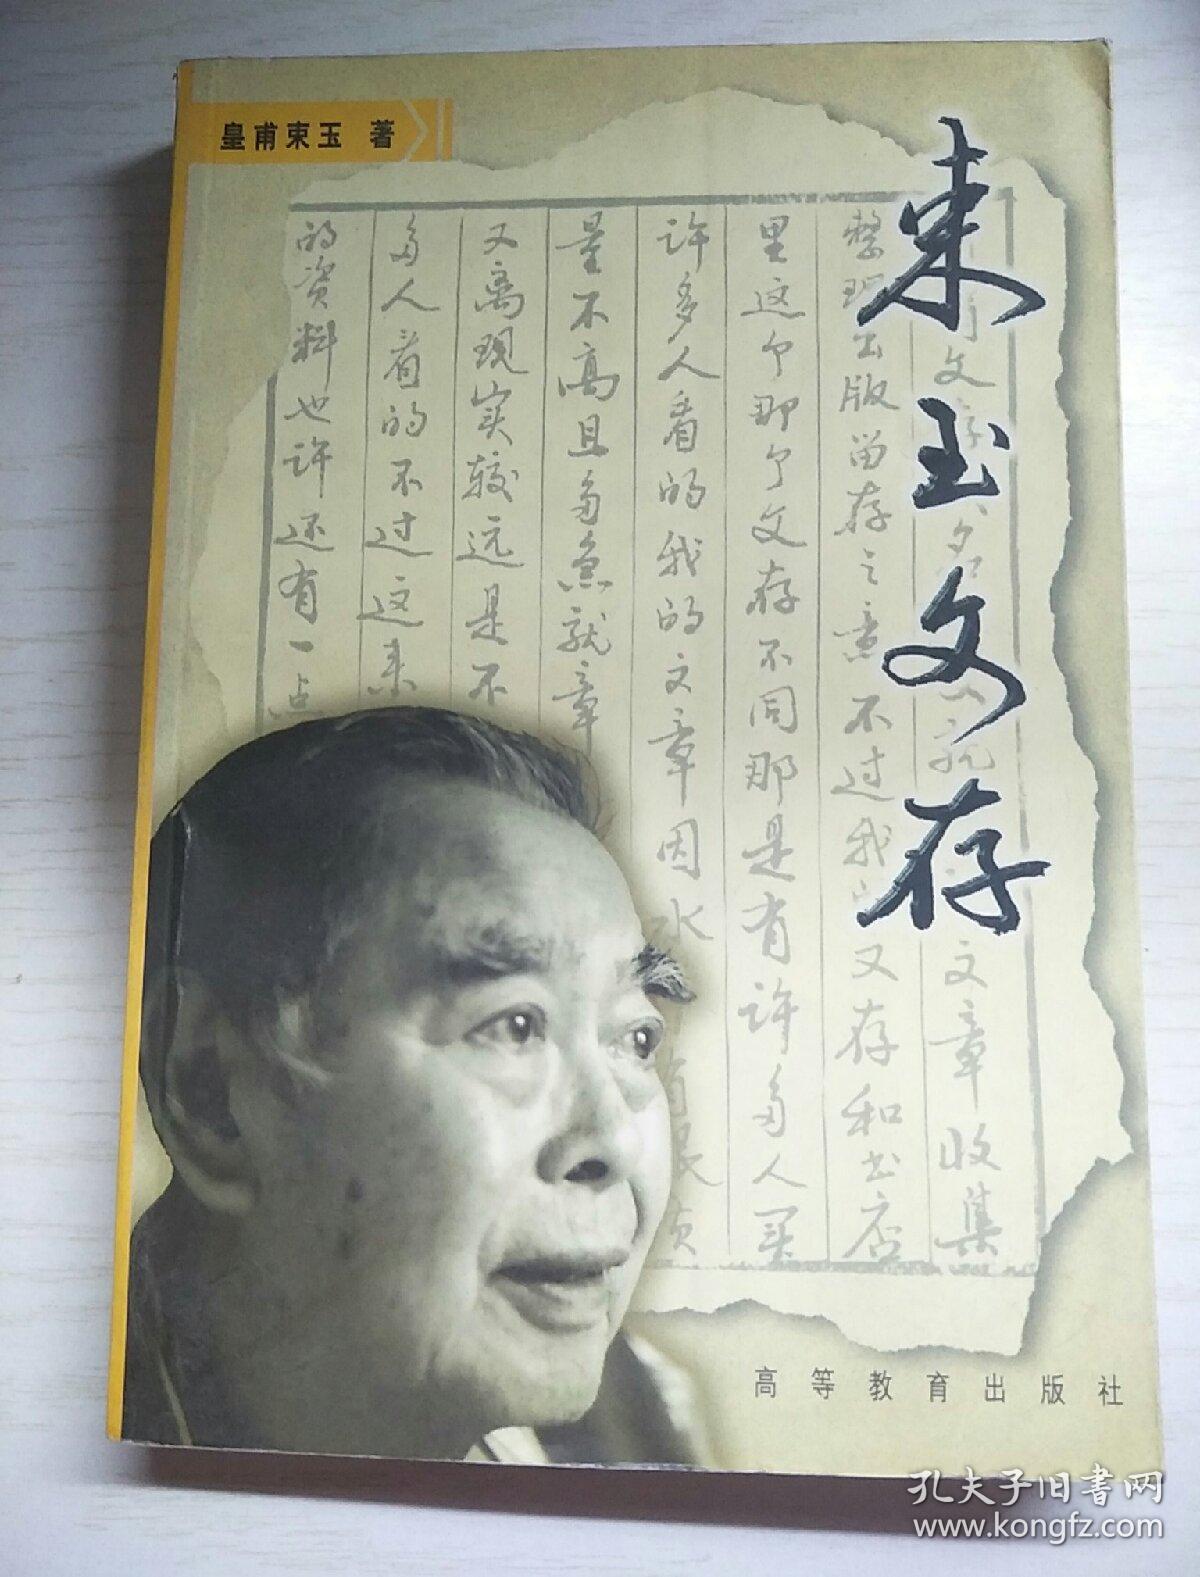 皇甫束玉 著
束玉文存
文章收集
整理出版留存之意不过我 又存和书店
里这个那个文存不同那是有许多人买
许多人看的我的文章因水
量不高且多急就章
又离现实较远是不
多人看的不过这来
的资料也许还有一点
高等教育出版社
孔夫子旧书网
www.kongfz.com